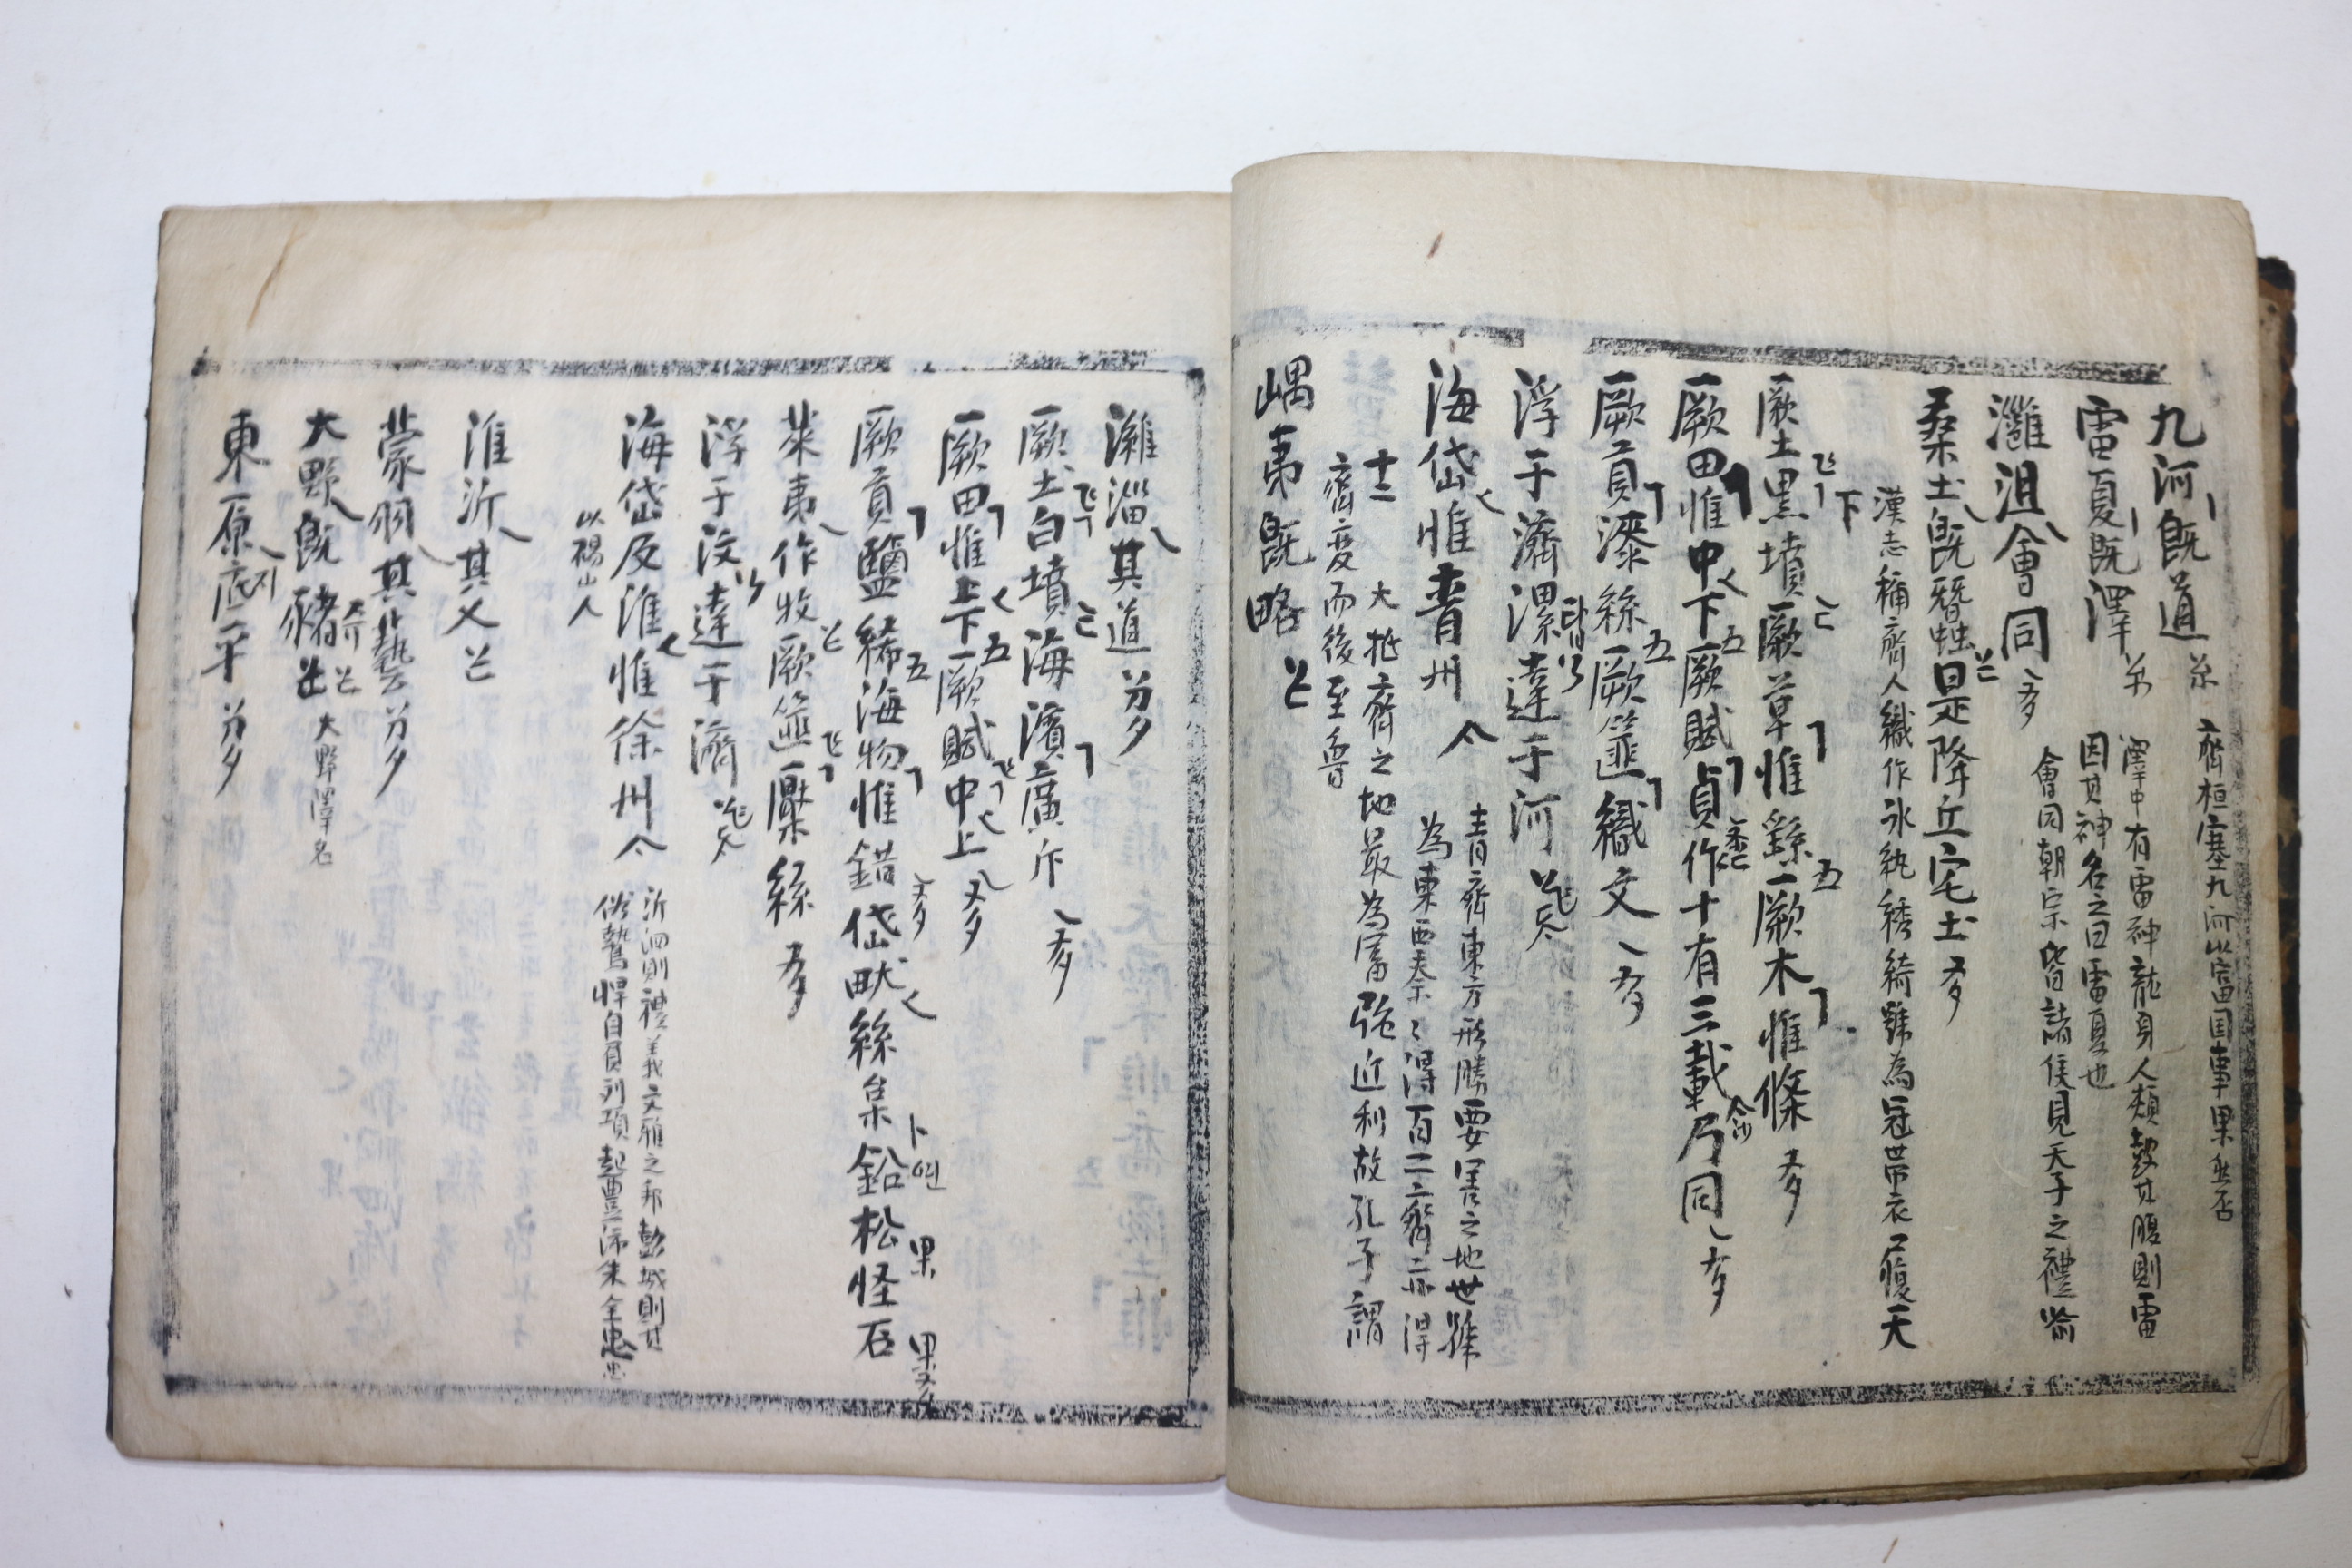 九河既道
齊桓塞九河以富国事果然否
雷夏既澤
澤中有雷神龍身人頰鼓其腹則雷
因其神名之曰雷夏也
灉沮會同
會同朝宗皆諸侯見天子之禮喻
桑土既蚕是降丘宅土
漢志稱齊人織作氷紈綉綺號為冠帶衣履天
下
厥土黑墳厥草惟繇厥木惟條
厥田惟中下厥賦貞作十有三載乃同
厥貢漆絲厥篚織文
浮于濟漯達于河
海岱惟青州
青齊東方形勝要害之地世號
為東西秦秦得百二齊亦得
十二 大抵齊之地最為富強近利故孔子謂
齊变而後至魯
嵎夷既略
濰淄其道
厥土白墳海濱廣斥
厥田惟上下厥賦中上
厥貢鹽絺海物惟錯岱畎絲枲鉛松怪石
萊夷作牧厥篚檿絲
浮于汶達于濟
海岱及淮惟徐州
沂泗則禮義文雅之邦彭城則其
俗鷙悍自負列項起豊沛朱全忠
以碭山人
淮沂其乂
蒙羽其藝
大野既豬 大野澤名
東原底平